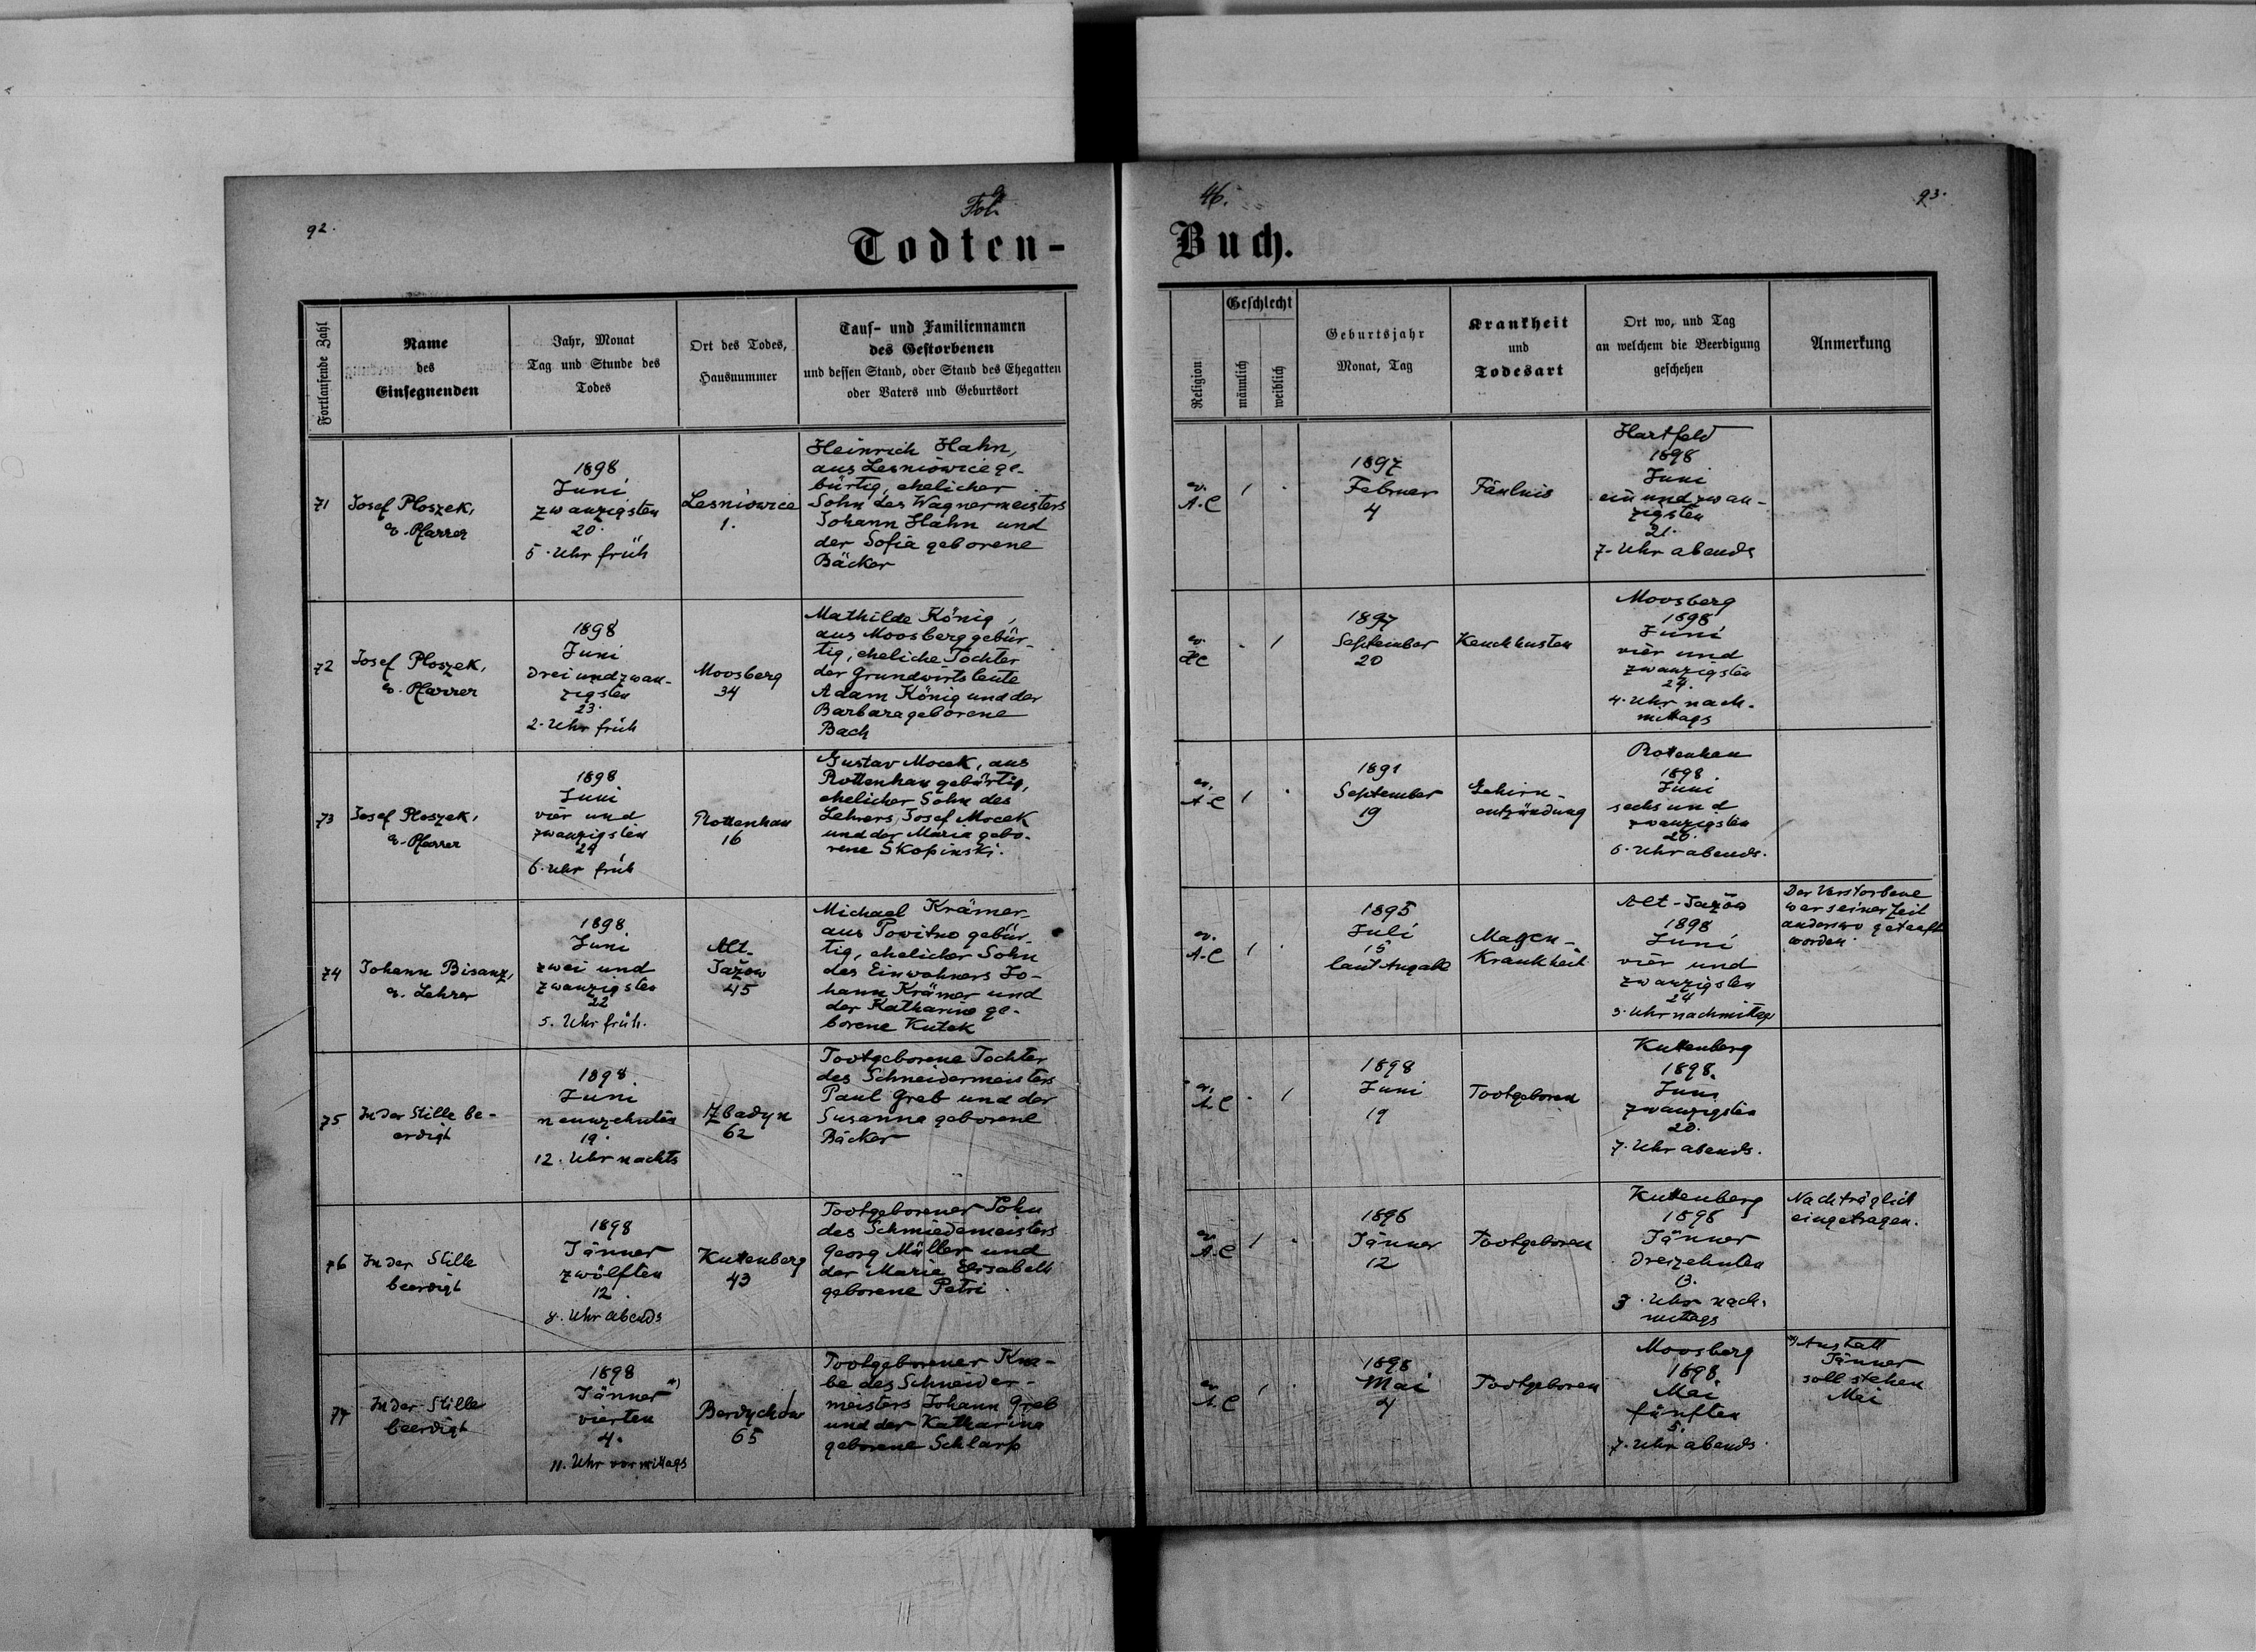 92.
Fol.
46.
93.
Todten-
Buch.
Fortlaufende Zahl
Name
des
Einsegnenden
Jahr, Monat
Tag und Stunde des
Todes
Ort des Todes,
Hausnummer
Tauf- und Familiennamen
des Gestorbenen
und dessen Stand, oder Stand des Ehegatten
oder Vaters und Geburtsort
Religion
Geschlecht
männlich
weiblich
Geburtsjahr
Monat, Tag
Krankheit
und
Todesart
Ort wo, und Tag
an welchem die Beerdigung
geschehen
Anmerkung
71
Josef Ploszek,
e. Pfarrer
1898
Juni
zwanzigsten
20.
5. Uhr früh
Lesniowice
1.
Heinrich Hahn,
aus Lesniowice ge-
bürtig, ehelicher
Sohn des Wagnermeisters
Johann Hahn und
der Sofia geborene
Bäcker
ev.
A.C
1
1897
Februar
4
Fäulnis
Hartfeld
1898
Juni
ein und zwan-
zigsten
21.
7. Uhr abends
72
Josef Ploszek,
e. Pfarrer
1898
Juni
drei und zwan-
zigsten
23.
2. Uhr früh
Moosberg
34
Mathilde König,
aus Moosberg gebür-
tig, eheliche Tochter
der Grundwirtsleute
Adam König und der
Barbara geborene
Bach
ev.
HC
1
1897
September
20
Keuchhusten
Moosberg
1898
Juni
vier und
zwanzigsten
24.
4. Uhr nach-
mittags
73
Josef Ploszek,
e. Pfarrer
1898
Juni
vier und
zwanzigsten
24
6. Uhr früh
Rottenhan
16
Gustav Mocek, aus
Rottenhan gebürtig,
ehelicher Sohn des
Lehrers, Josef Mocek
und der Maria gebo-
rene Skopinski.
ev.
A.C
1
1891
September
19
Gehirn-
entzündung
Rottenhan
1898
Juni
sechs und
zwanzigsten
26.
6. Uhr abends.
74
Johann Bisanz,
e. Lehrer
1898
Juni
zwei und
zwanzigsten
22
5. Uhr früh.
Alt-
Jażow
45
Michael Krämer
aus Powitno gebür-
tig, ehelicher Sohn
des Einwohners Jo-
hann Krämer und
der Katharina ge-
borene Kutek
ev.
A.C
1
1895
Juli
15
laut Angabe
Magen-
Krankheit
Alt-Jażow
1898
Juni
vier und
zwanzigsten
24
3. Uhr nachmittag
Der Verstorbene
war seiner Zeit
anderswo getauft
worden.
75
In der Stille be-
erdigt
1898
Juni
neunzehnten
19.
12. Uhr nachts
Zbadyn
62
Todtgeborene Tochter
des Schneidermeisters
Paul Greb und der
Susanna geborene
Bäcker
ev.
A.C
1
1898
Juni
19
Todtgeboren
Kuttenberg
1898
Juni
zwanzigsten
20.
7. Uhr abends.
76
In der Stille
beerdigt
1898
Jänner
zwölften
12.
8. Uhr abends
Kuttenberg
43
Todtgeborener Sohn
des Schmiedemeisters
Georg Müller und
der Marie Elisabeth
geborene Petri
ev.
A.C
1
1898
Jänner
12
Todtgeboren
Kuttenberg
1898
Jänner
dreizehnten
13.
3. Uhr nach-
mittags
Nachträglich
eingetragen.
77
In der Stille
beerdigt
1898
Jänner *)
vierten
4.
11. Uhr vormittags
Berdychów
65
Todtgeborener Kna-
be des Schneider-
meisters Johann Greb
und der Katharina
geborene Schlarp
ev.
A.C
1
1898
Mai
4
Todtgeboren
Moosberg
1898
Mai
fünften
5.
7. Uhr abends.
*) Anstatt
Jänner
soll stehen
Mai